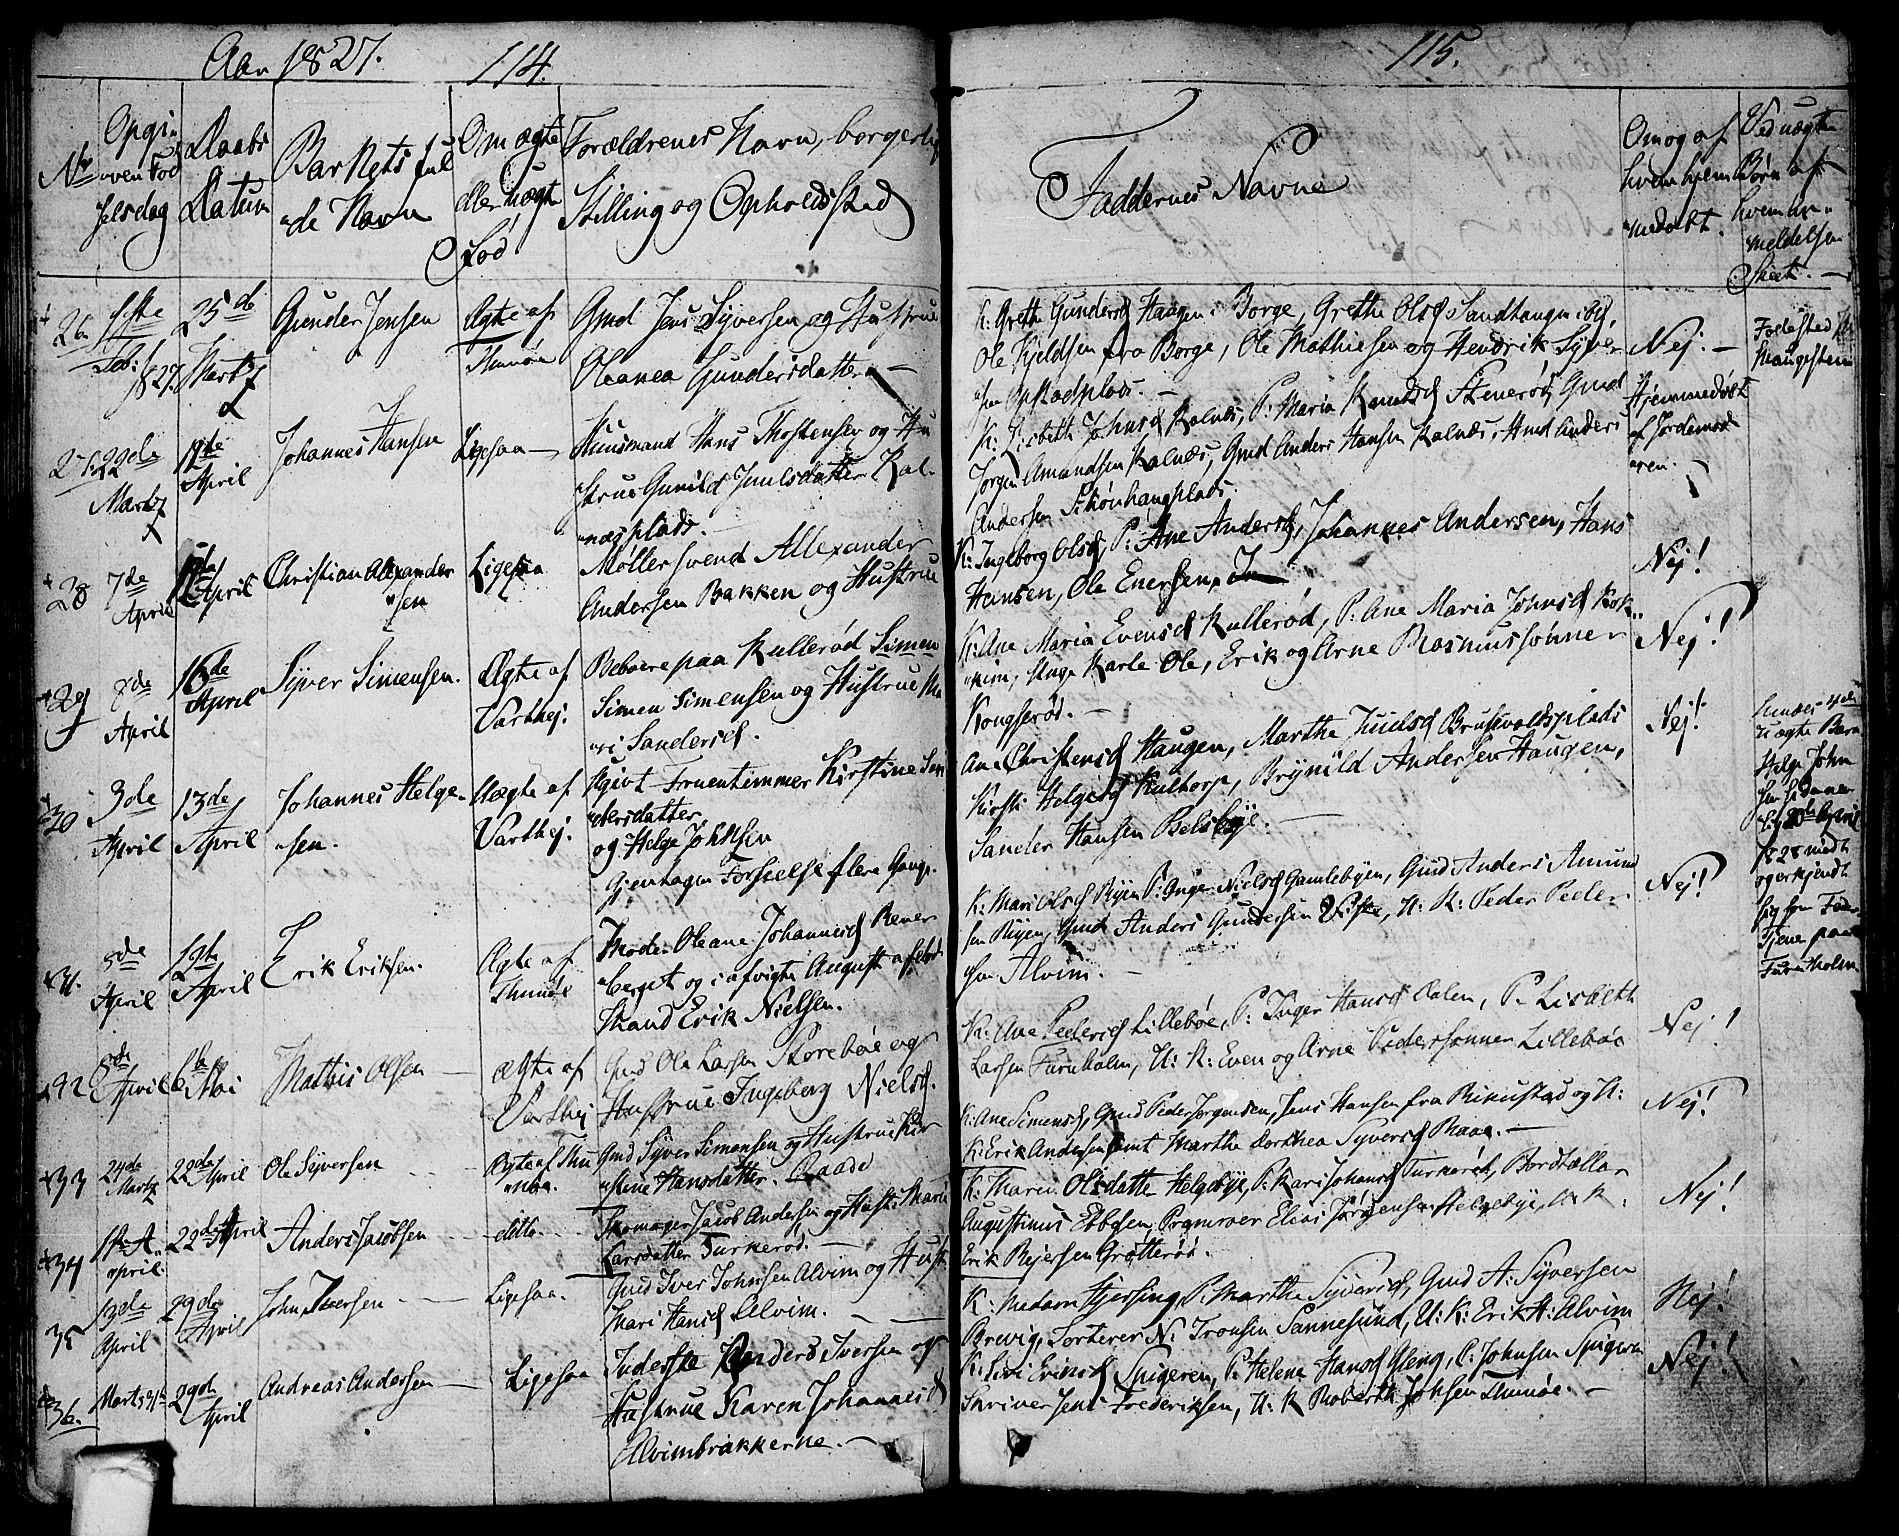 Aar 1827.
114.
No
Opgi-
ven Fød
selsdag
Daabs
Datum
Barnets ful
de Navn
Om ægte
eller uægte
Fød
Forældrenes Navn, borgerlig
Stilling og Opholdsted
26
1ste
Feb:
1827
25de
Martz
Gunder Jensen
Ægte af
Thunøe
Gmd Jens Syversen og Hustrue
Oleanea Gundersdatter —
27
22de
Martz
April
Johannes Hansen
Ligesaa —
Huusmand Hans Thostensen og Hu
strue Gunild Juulsdatter Kal-
næsplads. —
28
7de
April
April
Christian Alexander
sen
Ligesaa
Møllersvend Allexander
Andersen Bakken og Hustrue
29
8de
April
16de
April
Syver Simensen.
Ægte af
Varthej.
Beboere paa Kullerød Simen
Simen Simensen og Hustrue Ma
ri Sandersd.
30
3de
April
13de
April
Johannes Helge-
sen.
Uægte af
Varthej.
Ugivt Fruentimmer Kirstine San
dersdatter
og Helge Johnsen
Gjentagen Forseelse flere Gange.
31.
5de
April
April
Erik Eriksen.
Ægte af
Thunøe
Moder Oleane Johannesd
berget og i afvigte August afdød
Mand Erik Nielsen.
8de
April
6te Mai
Mathis Olsen —
Ægte af
Varthej
Gmd Ole Larsen Storebøe og
Hustrue Ingeborg Nielsd.
33
24de
Martz
22de April
Ole Syversen
Ægte af Thu
nøe.
Gmd Syver Simensen og Hustrue Kir
stine Hansdatter. Raade
34
April.
22de April
Anders Jacobsen
ditto
Skomager Jacob Andersen og Hust: Marie
Larsdatter Turkerød. —
35
13de
April
29de
April
John Iversen
Ligesaa.
Gmd Iver Johnsen Alvim og Hust
Mari Hansd Alvim. —
36.
29de
April
Andreas Andersen
Ligesaa
Inderste Anders Iversen og
Hustrue Karen Johannesd
Alvimbrakkerne. —
115.
Faddernes Navne
Om og af
hvem hjem
medøbt.
Ved uægte
Børn af
hvem an-
meldelsen
Skeet. —
K: Grethe Gundersd Haugen i Borge, Grethe Olsd Sandhaugen ibd,
Ole Kjeldsen fra Borge, Ole Mathiesen og Hendrik Syver
sen Opstadplads. —
Nej. —
Fødested
K: Lisbeth Johnsd Kalnæs, P: Maria Knudsd Stenerød, Gmd
Jørgen Amundsen Kalnæs, Gmd Anders Hansen Kalnæs, Hmd Anders
Andersen Skönhaugplads.
Hjemmedøbt
af Jordemod
eren.
K: Ingeborg Olsd, P: Ane Andersd, Johannes Andersen, Hans
Hansen, Ole Enersen,
Nej!
K: Ane Maria Evensd Kullerød, P: Ane Maria Johnsd Kok
kim, Unge Karle Ole, Erik og Arne Rasmussønner
Kongserød. —
Nej!
Ane Christensd Haugen, Marthe Juulsd Brustvoldsplads
Kirsti Helgesd Kultorp, Brynild Andersen Haugen,
Sander Hansen Belsbye. —
Nej!
uægte Barn
Helge John
sen
April
1828 mødt
og erkjendt
sig som Fader
Tjene paa
Furuholm.
K: Mari Olsd Ryen P: Inger Nielsd Gamlebyen, Gmd Anders Amund
sen Ryen, Gmd Anders Gundersen Viste, U: K: Peder Peder
sen Alvim. —
Nej!
K: Ane Pedersd Lillebøe, P: Inger Hansd Dalen, P: Lisbeth
Larsen Furuholm, U: K: Even og Arne Pedersønner Lillebøe
Nej!
K: Ane Simensd, Gmd Peder Jørgensen, Jens Hansen fra Rikustad og U:
K: Erik Andersen samt Marthe Dorthea Syversd Raae. —
Nej!
K: Maren Olsdatter Helgebye, P: Kari Johansd Turkerød, Bordtæller
Augustinus Ebbesen, Prgmrøer Elias Jørgensen Helgebye, U: K:
Erik Rejersen Grøtterød.
Nej!
K: Madam Hjersing, P: Marthe Syversd, Gmd A: Syversen
Brevig, Sorterer N: Tronsen Sannesund, U: K: Erik H: Alvim
Nej!
K: Siri Eriksd Spigeren, P: Helene Hansd Gleng, C: Johnsen Spigeren
Skriver Jens Frederiksen, U: K Roberth Johsen Thunøe. —
Nej!